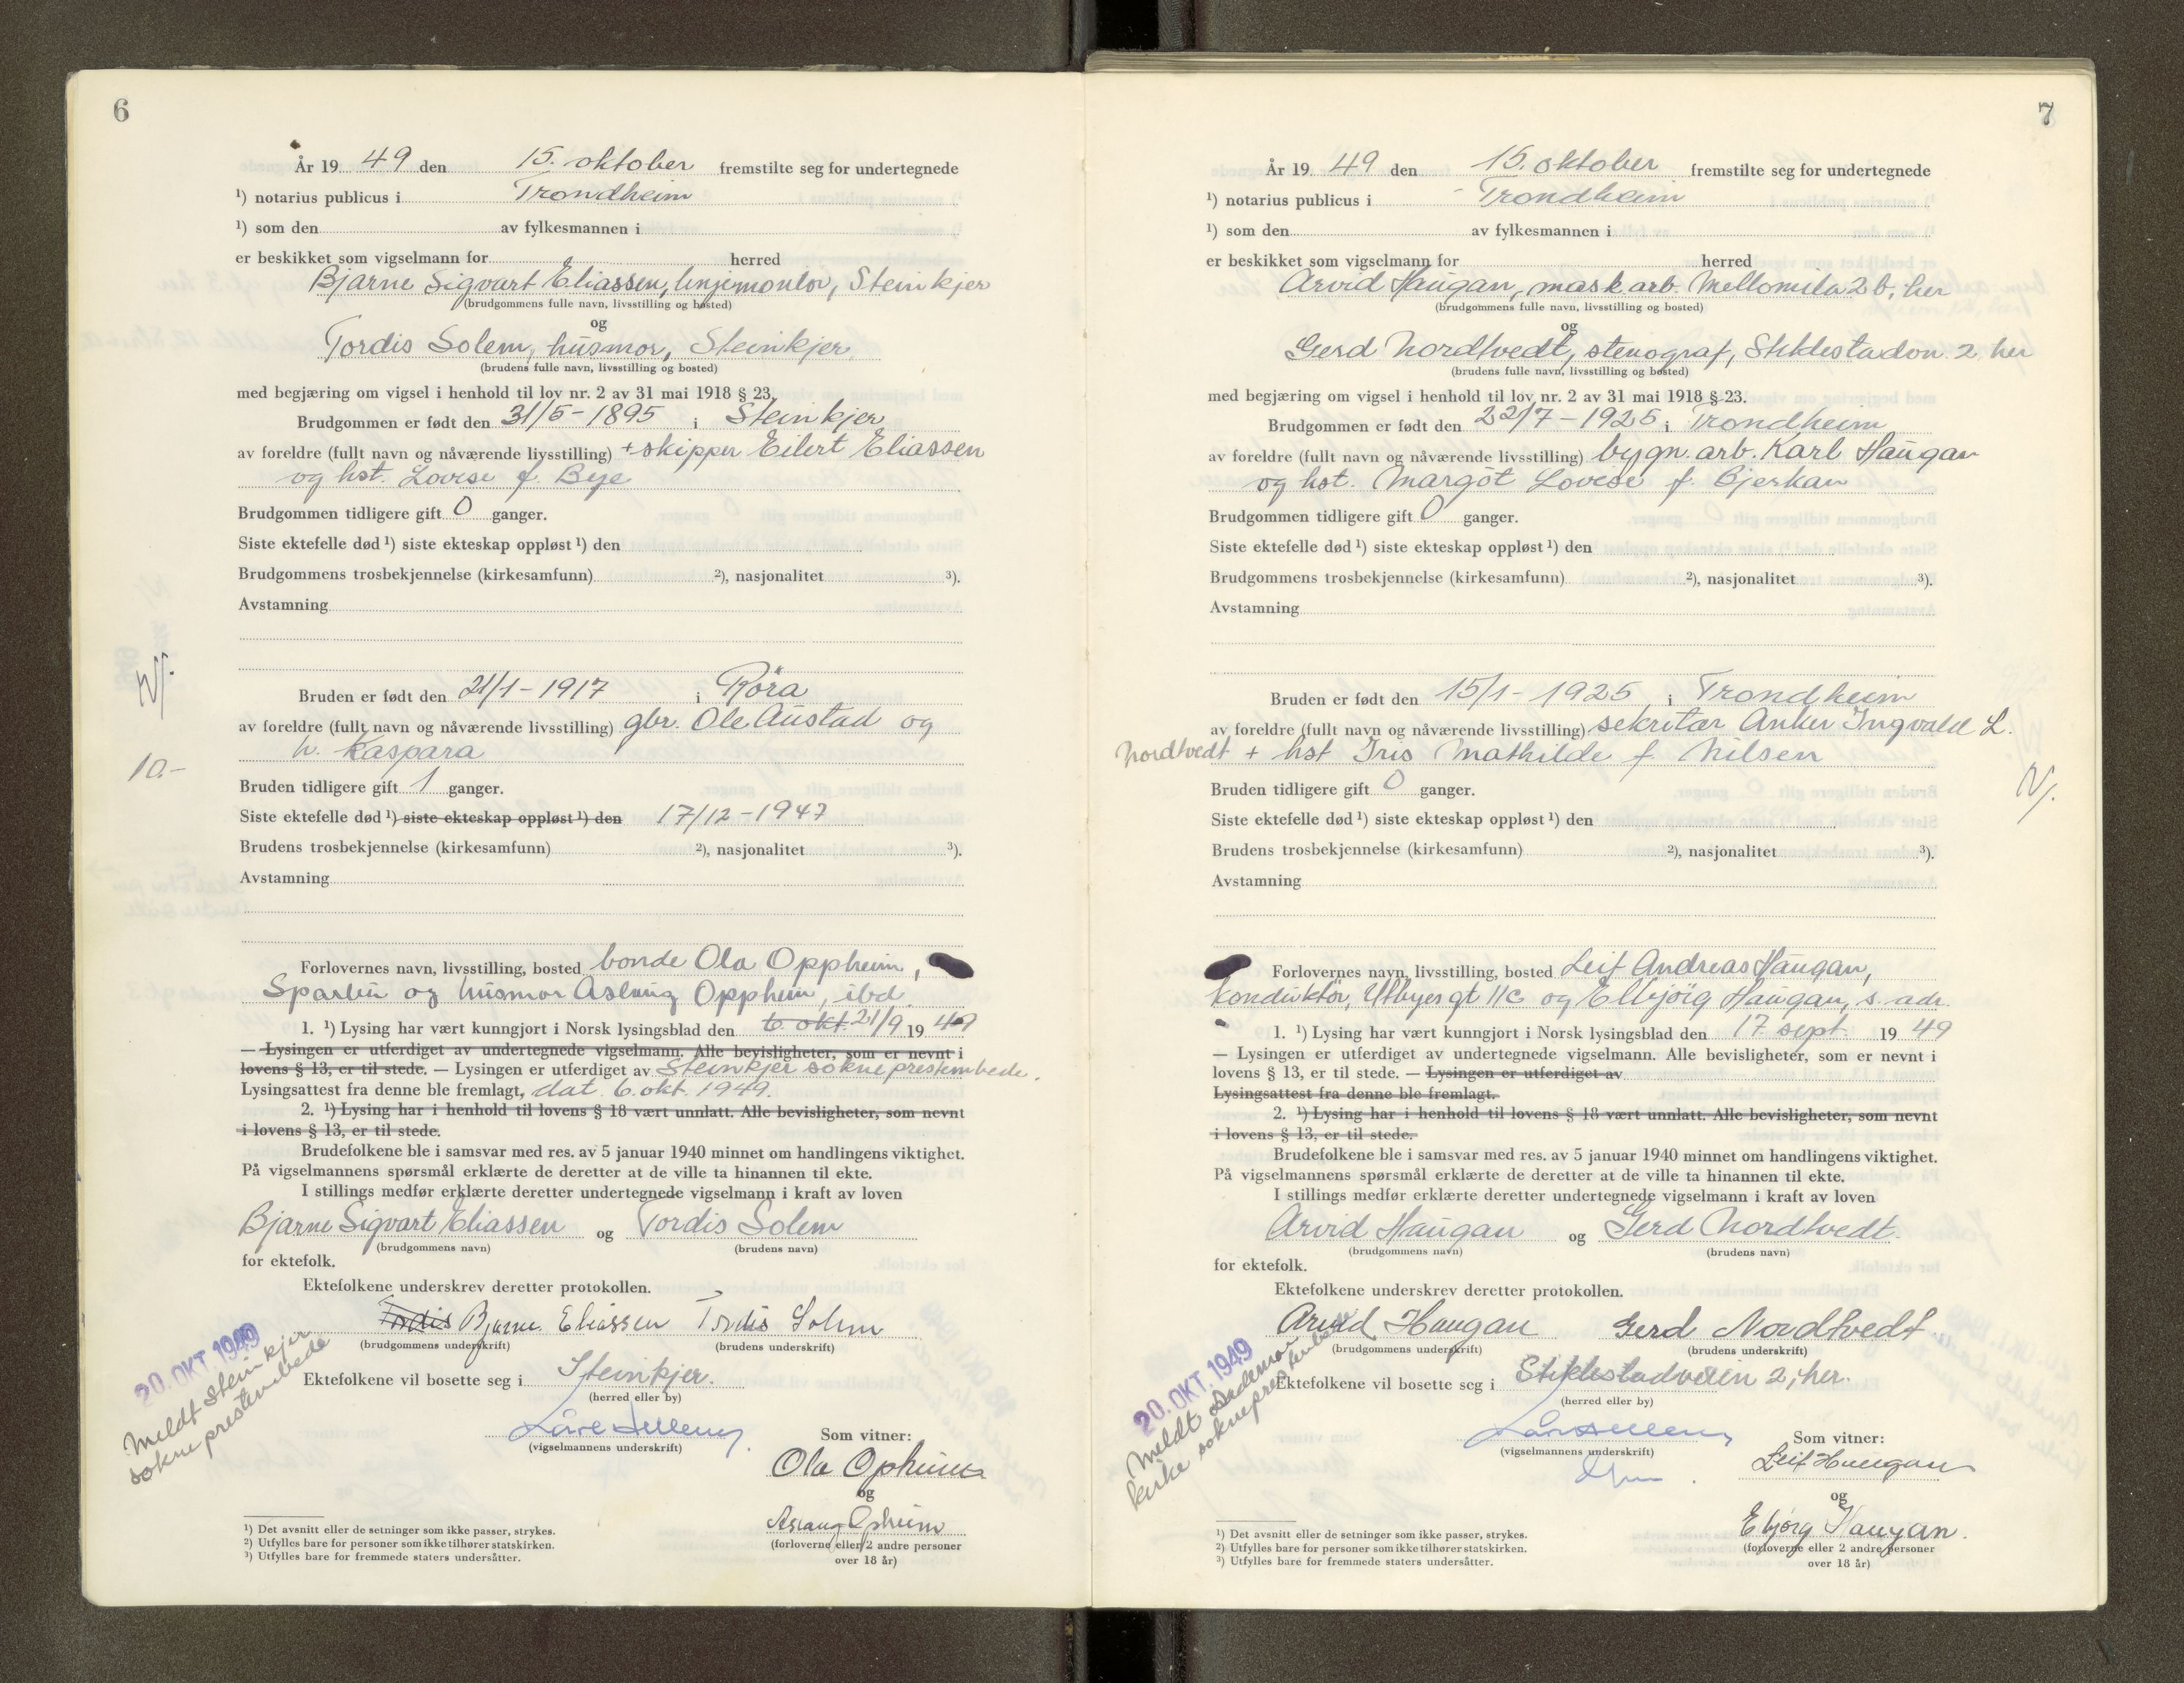 6
År 19 49 den 15. oktober fremstilte seg for undertegnede
¹) notarius publicus i Trondheim
¹) som den av fylkesmannen i
er beskikket som vigselmann for herred
Bjarne Sigvart Eliassen, linjemontør, Steinkjer
(brudgommens fulle navn, livsstilling og bosted)
og
Tordis Solem, husmor, Steinkjer
(brudens fulle navn, livsstilling og bosted)
med begjæring om vigsel i henhold til lov nr. 2 av 31 mai 1918 § 23.
Brudgommen er født den 31/5-1895 i Steinkjer
av foreldre (fullt navn og nåværende livsstilling) + skipper Eilert Eliassen
og hst. Lovise f. Bye
Brudgommen tidligere gift 0 ganger.
Siste ektefelle død ¹) siste ekteskap oppløst ¹) den
Brudgommens trosbekjennelse (kirkesamfunn) ²), nasjonalitet ³).
Avstamning
Bruden er født den 21/1-1917 i Röra
av foreldre (fullt navn og nåværende livsstilling) gbr. Ole Austad og
h. Kaspara
10.-
Bruden tidligere gift 1 ganger.
Siste ektefelle død ¹) siste ekteskap oppløst ¹) den 17/12-1947
Brudens trosbekjennelse (kirkesamfunn) ²), nasjonalitet ³).
Avstamning
Forlovernes navn, livsstilling, bosted bonde Ola Oppheim,
Sparbu og husmor Aslaug Oppheim, ibd.
1. ¹) Lysing har vært kunngjort i Norsk lysingsblad den 6. okt. 21/9 19 49
— Lysingen er utferdiget av undertegnede vigselmann. Alle bevisligheter, som er nevnt i
lovens § 13, er til stede. — Lysingen er utferdiget av Steinkjer sokneprestembede.
Lysingsattest fra denne ble fremlagt, dat. 6. okt. 1949.
2. ¹) Lysing har i henhold til lovens § 18 vært unnlatt. Alle bevisligheter, som nevnt
i lovens § 13, er til stede.
Brudefolkene ble i samsvar med res. av 5 januar 1940 minnet om handlingens viktighet.
På vigselmannens spørsmål erklærte de deretter at de ville ta hinannen til ekte.
I stillings medfør erklærte deretter undertegnede vigselmann i kraft av loven
Bjarne Sigvart Eliassen og Tordis Solem
(brudgommens navn) (brudens navn)
for ektefolk.
Ektefolkene underskrev deretter protokollen.
Tordis Bjarne Eliassen Tordis Solem
(brudgommens underskrift) (brudens underskrift)
20. OKT. 1949
Meldt Steinkjer
sokneprestembede
Ektefolkene vil bosette seg i Steinkjer.
(herred eller by)
(vigselmannens underskrift)
Som vitner:
Ola Opheim
og
Aslaug Opheim
(forloverne eller 2 andre personer
over 18 år)
¹) Det avsnitt eller de setninger som ikke passer, strykes.
²) Utfylles bare for personer som ikke tilhører statskirken.
³) Utfylles bare for fremmede staters undersåtter.
7
År 19 49 den 15. oktober fremstilte seg for undertegnede
¹) notarius publicus i Trondheim
¹) som den av fylkesmannen i
er beskikket som vigselmann for herred
Arvid Haugan, mask.arb. Mellomila 2b, her
(brudgommens fulle navn, livsstilling og bosted)
og
Gerd Nordtvedt, stenograf, Stiklestadvn. 2 her
(brudens fulle navn, livsstilling og bosted)
med begjæring om vigsel i henhold til lov nr. 2 av 31 mai 1918 § 23.
Brudgommen er født den 22/7-1925 i Trondheim
av foreldre (fullt navn og nåværende livsstilling) bygn. arb. Karl Haugan
og hst. Margot Lovise f. Bjerkan
Brudgommen tidligere gift 0 ganger.
Siste ektefelle død ¹) siste ekteskap oppløst ¹) den
Brudgommens trosbekjennelse (kirkesamfunn) ²), nasjonalitet ³).
Avstamning
Bruden er født den 15/1-1925 i Trondheim
av foreldre (fullt navn og nåværende livsstilling) sekretær Anker Ingvald L.
Nordtvedt + hst Iris Mathilde f. Nilsen
Bruden tidligere gift 0 ganger.
Siste ektefelle død ¹) siste ekteskap oppløst ¹) den
Brudens trosbekjennelse (kirkesamfunn) ²), nasjonalitet ³).
Avstamning
Forlovernes navn, livsstilling, bosted Leif Andreas Haugan,
konduktör, Utbyes gt 11c og Elbjörg Haugan, s. adr.
1. ¹) Lysing har vært kunngjort i Norsk lysingsblad den 17. sept. 19 49
— Lysingen er utferdiget av undertegnede vigselmann. Alle bevisligheter, som er nevnt i
lovens § 13, er til stede. — Lysingen er utferdiget av
Lysingsattest fra denne ble fremlagt.
2. ¹) Lysing har i henhold til lovens § 18 vært unnlatt. Alle bevisligheter, som nevnt
i lovens § 13, er til stede.
Brudefolkene ble i samsvar med res. av 5 januar 1940 minnet om handlingens viktighet.
På vigselmannens spørsmål erklærte de deretter at de ville ta hinannen til ekte.
I stillings medfør erklærte deretter undertegnede vigselmann i kraft av loven
Arvid Haugan og Gerd Nordtvedt.
(brudgommens navn) (brudens navn)
for ektefolk.
Ektefolkene underskrev deretter protokollen.
Arvid Haugan Gerd Nordtvedt
(brudgommens underskrift) (brudens underskrift)
20. OKT. 1949
Meldt Lademoen
kirke sokneprestembede
Ektefolkene vil bosette seg i Stiklestadveien 2, her.
(herred eller by)
(vigselmannens underskrift)
Som vitner:
Leif Haugan
og
Elbjørg Haugan.
(forloverne eller 2 andre personer
over 18 år)
¹) Det avsnitt eller de setninger som ikke passer, strykes.
²) Utfylles bare for personer som ikke tilhører statskirken.
³) Utfylles bare for fremmede staters undersåtter.